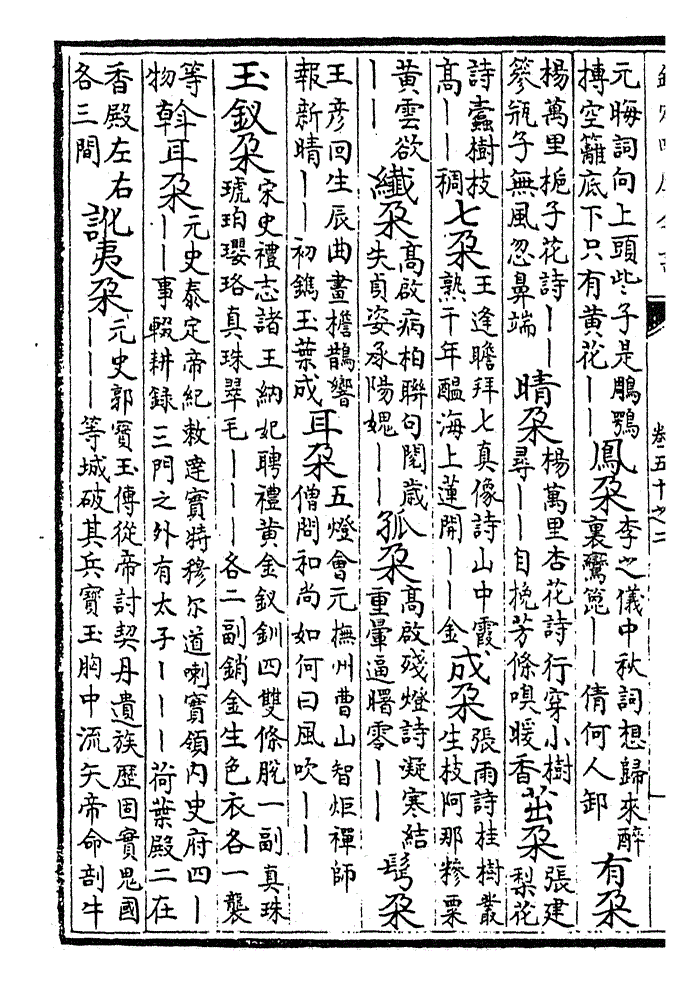 卷五十之二
元晦詞向上頭些子是鵰鶚
摶空籬底下只有黄花——
鳳朶
李之儀中秋詞想歸來醉
裏鸞箆——倩何人卸
有朶
楊萬里梔子花詩——
篸瓶子無風忽鼻端
晴朶
楊萬里杏花詩行穿小樹
尋——自挽芳條嗅暖香
茁朶
張建
梨花
詩蠹樹枝
高——稠
七朶
王逢瞻拜七真像詩山中霞
熟千年醖海上蓮開——金
成朶
張雨詩桂樹叢
生枝阿那糝粟
黄雲欲
——
纎朶
高啟病柏聯句閱歳
失貞姿承陽媿——
孤朶
高啟殘燈詩凝寒結
重暈逼曙零——
髩朶
王彦回生辰曲畫檐鵲響
報新晴——初鐫玉葉成
耳朶
五燈會元撫州曹山智炬禪師
僧問和尚如何曰風吹——
玉釵朶
宋史禮志諸王納妃聘禮黄金釵釧四雙條脫一副真珠
琥珀瓔珞真珠翠毛———各二副銷金生色衣各一襲
等
物
斡耳朶
元史泰定帝紀敕達實特穆尔道喇實領内史府四—
——事輟耕録三門之外有太子———荷葉殿二在
香殿左右
各三間
訛夷朶
元史郭寶玉傳從帝討契丹遺族歴固實鬼國
———等城破其兵寶玉胸中流矢帝命剖牛